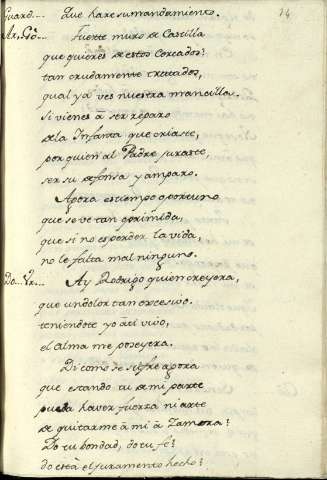 Guard... Que hare su mandamiento. 14
Ar. Gõ... Fuerte muro de Castilla
que quieres de estos Corcados?
tan crudamente tratados,
qual ya ves nuestra mancilla.
Si vienes a ser reparo
de la Infanta que criaste,
por quien al Padre juraste,
ser su defensa y amparo.
Agora es tiempo oportuno
que se ve tan oprimida,
que si no es perder la vida,
no le falta mal ninguno.
Ay Rodrigo quien creyera,
que un dolor tan excesivo.
teniendote yo a ti vivo,
el alma me poseyera.
Di como se sufre agora
que estando tu de mi parte
pueda haver fuerza ni arte
de quitarme à mi à Zamora?
Do tu bondad, do tu fe?
do està el juramento hecho?